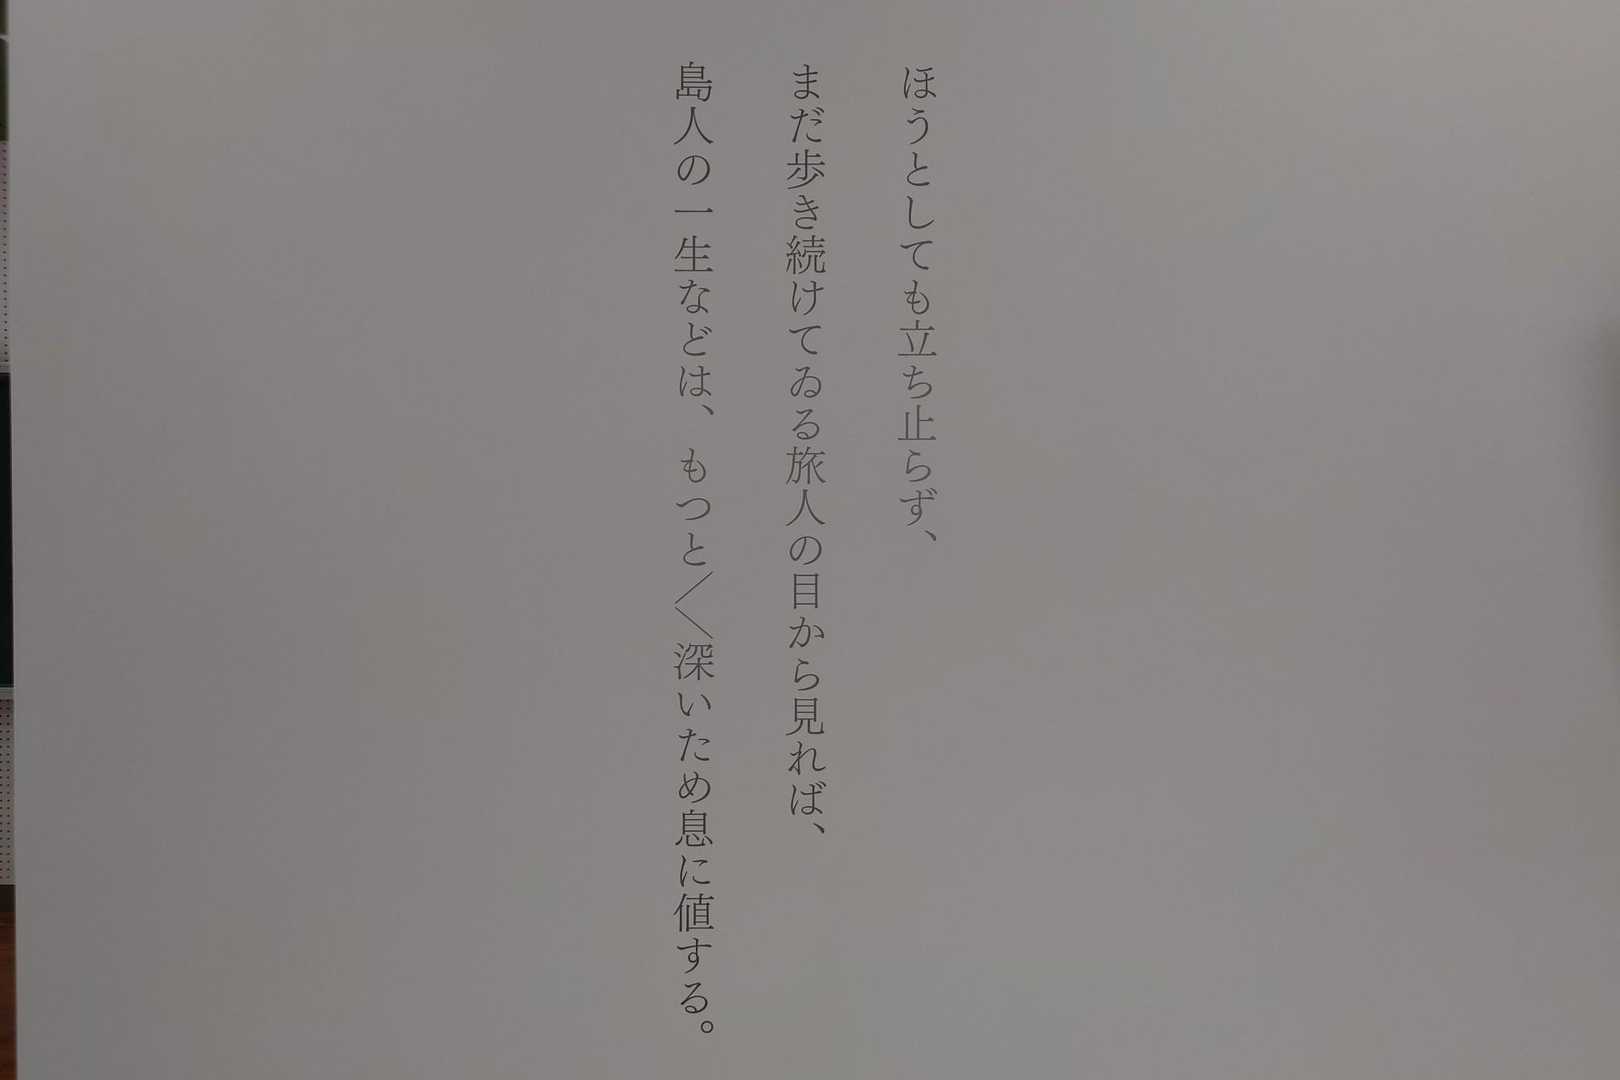 ほうとしても立ち止らず、
まだ歩き続けてゐる旅人の目から見れば、
島人の一生などは、もつと〳〵深いため息に値する。